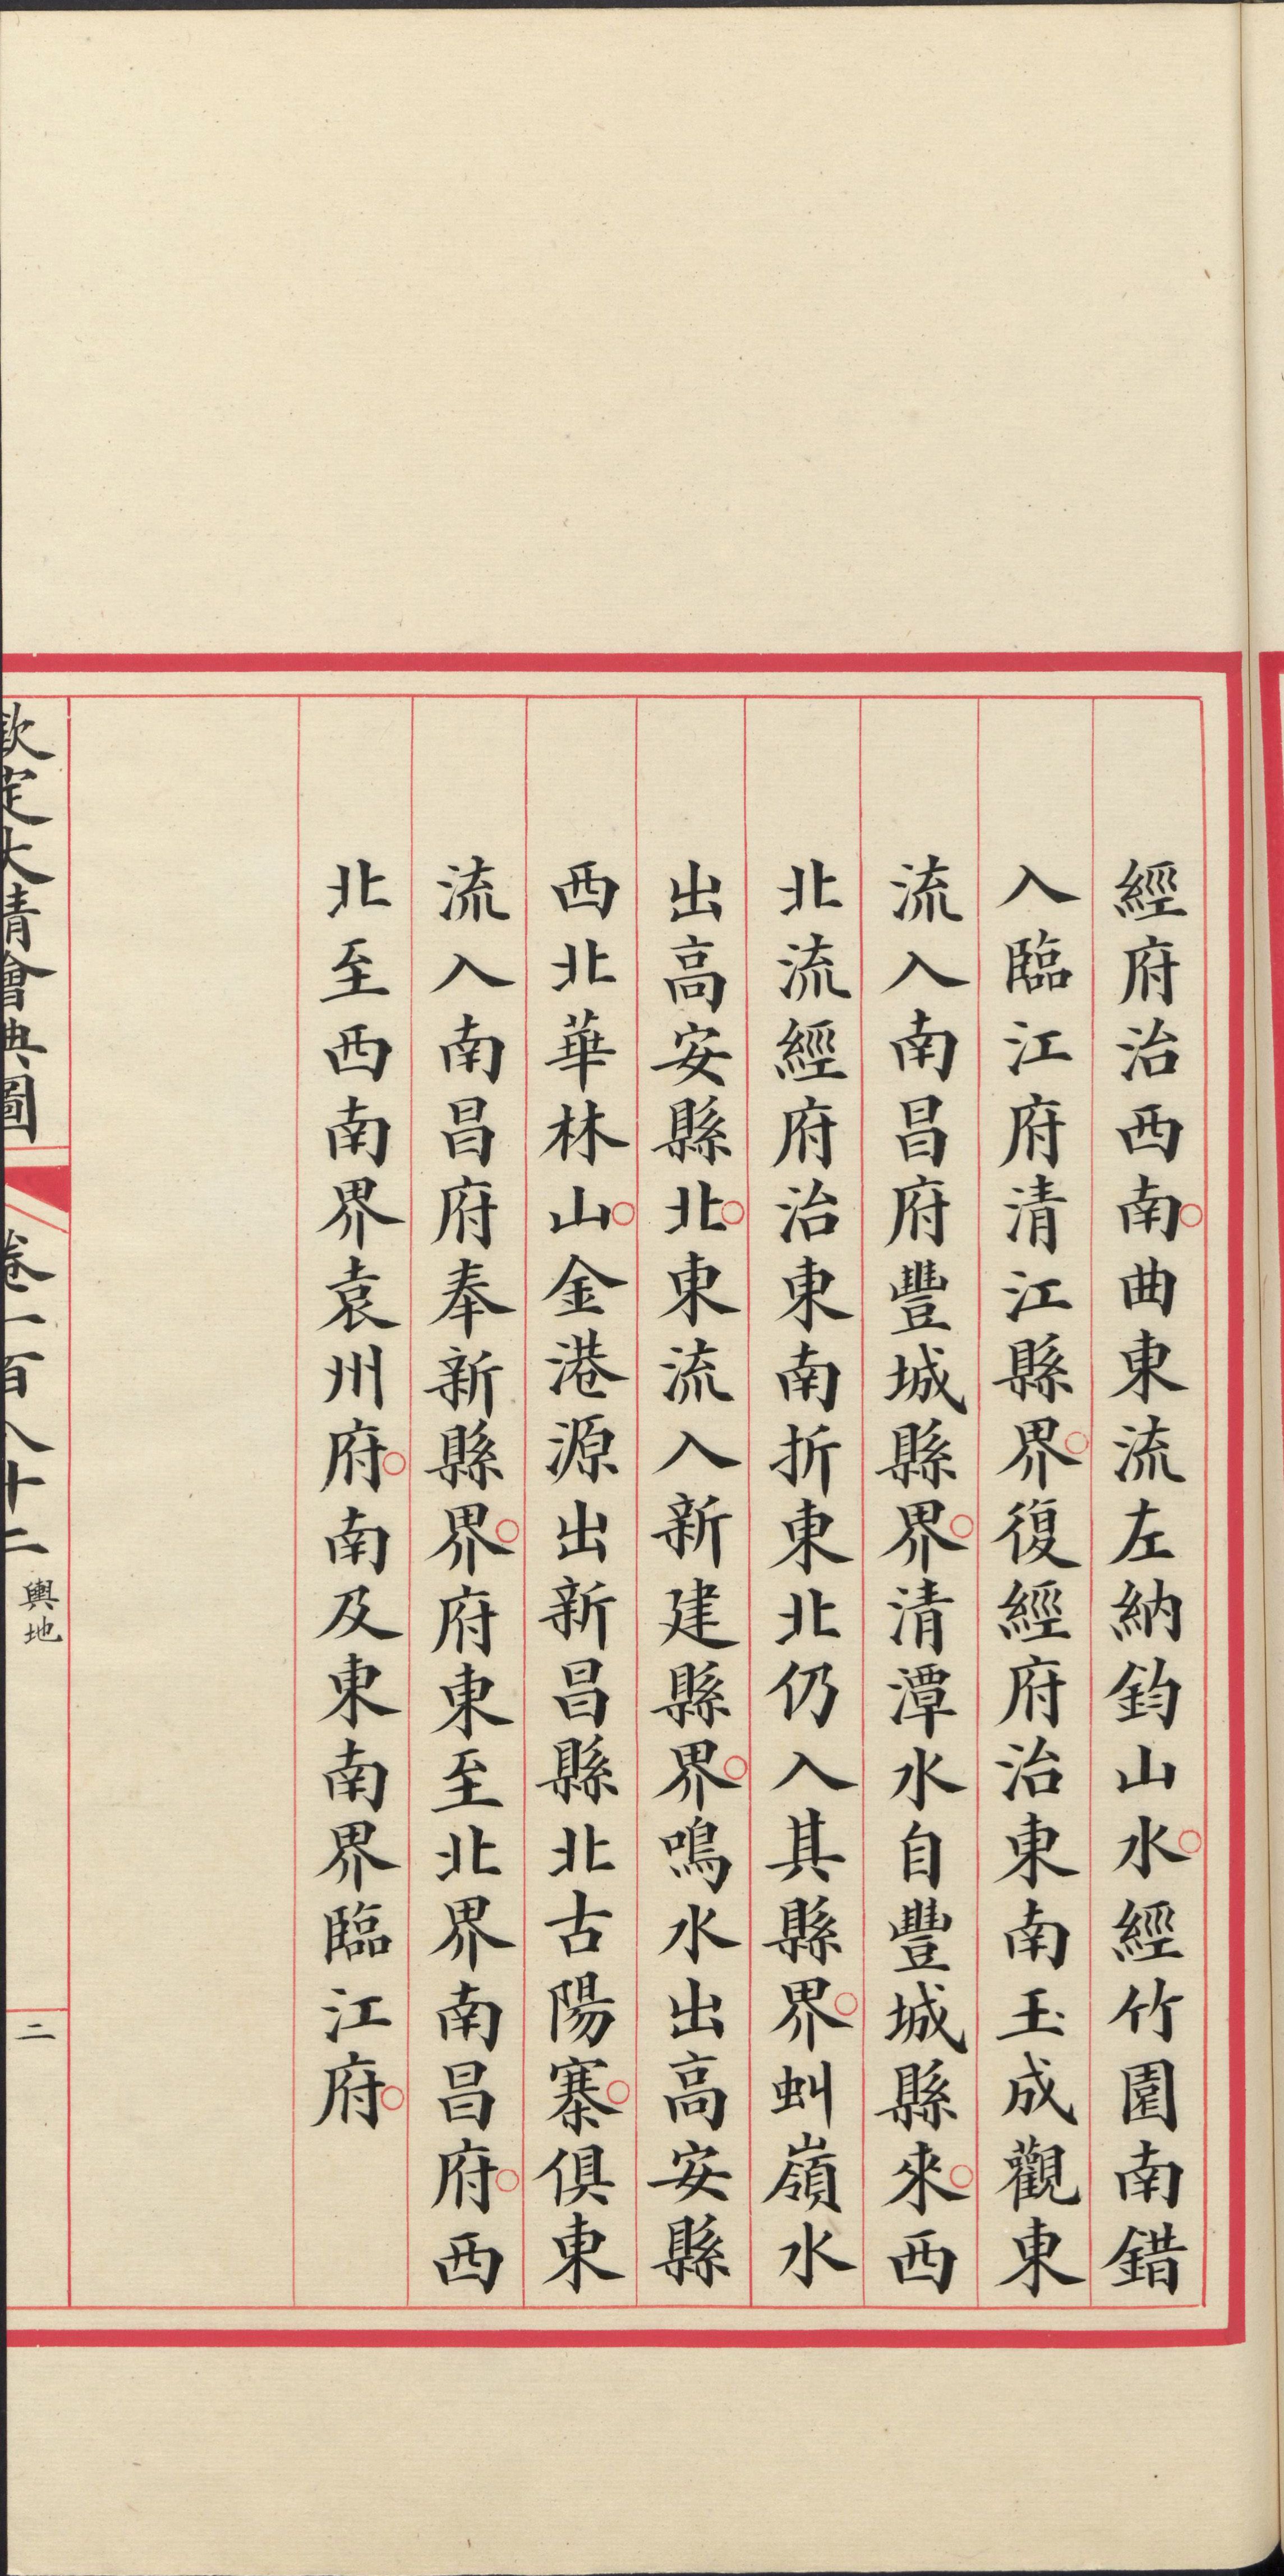 經府治西南。曲東流左納鈞山水。經竹園南錯
入臨江府清江縣界。復經府治東南玉成觀東
流入南昌府豐城縣界。清潭水自豐城縣來。西
北流經府治東南折東北仍入其縣界。虯嶺水
出高安縣北。東流入新建縣界。鳴水出高安縣
西北華林山。金港源出新昌縣北古陽寨。俱東
流入南昌府奉新縣界。府東至北界南昌府。西
北至西南界袁州府。南及東南界臨江府。
欽定大清會典圖
卷一百八十二 輿地
二